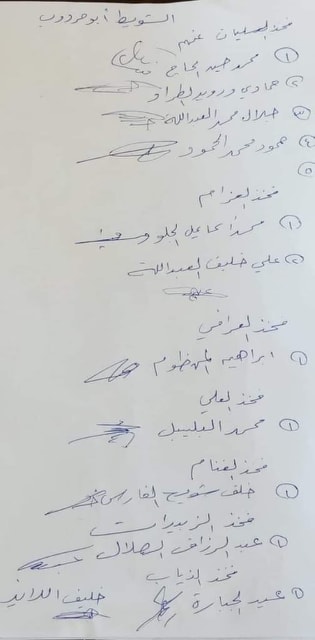 الشويط أبو حردوب
فخذ العليات عنهم
① محمد حسين الحاج
② حمادي درويد الطراد
③ جلال محمد العبدالله
④ حمود محمد الحمود
⑤
فخذ العزام
① محمد اسماعيل الجلود
② علي خليف العبدالله
فخذ العرافي
① ابراهيم المهظوم
فخذ العلي
① محمد البليبل
فخذ الغنام
① خلف شويخ الفارس
فخذ الزبيرات
① عبد الرزاق الهلال
فخذ الذياب
① عبيد جبارة خليف اللايذ